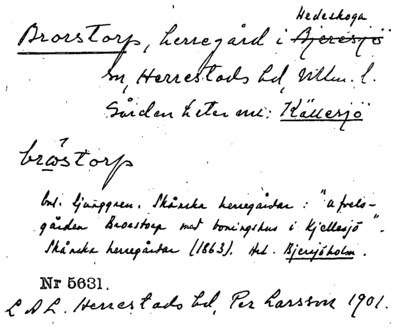 Hedeskoga
Brorstorp, herregård i Bjeresjö
sn, Herrestads hd, Mlm. l.
Gården heter nu: Källesjö
bråstorp
enl. Ljunggren. Skånska herregårdar: "Ufrels-
gården Brorstorp med boningshus i Kjellesjö".
Skånska herregårdar (1863). Hd. Bjersjöholm.
Nr 5631.
L A L. Herrestads hd, Per Larsson 1901.